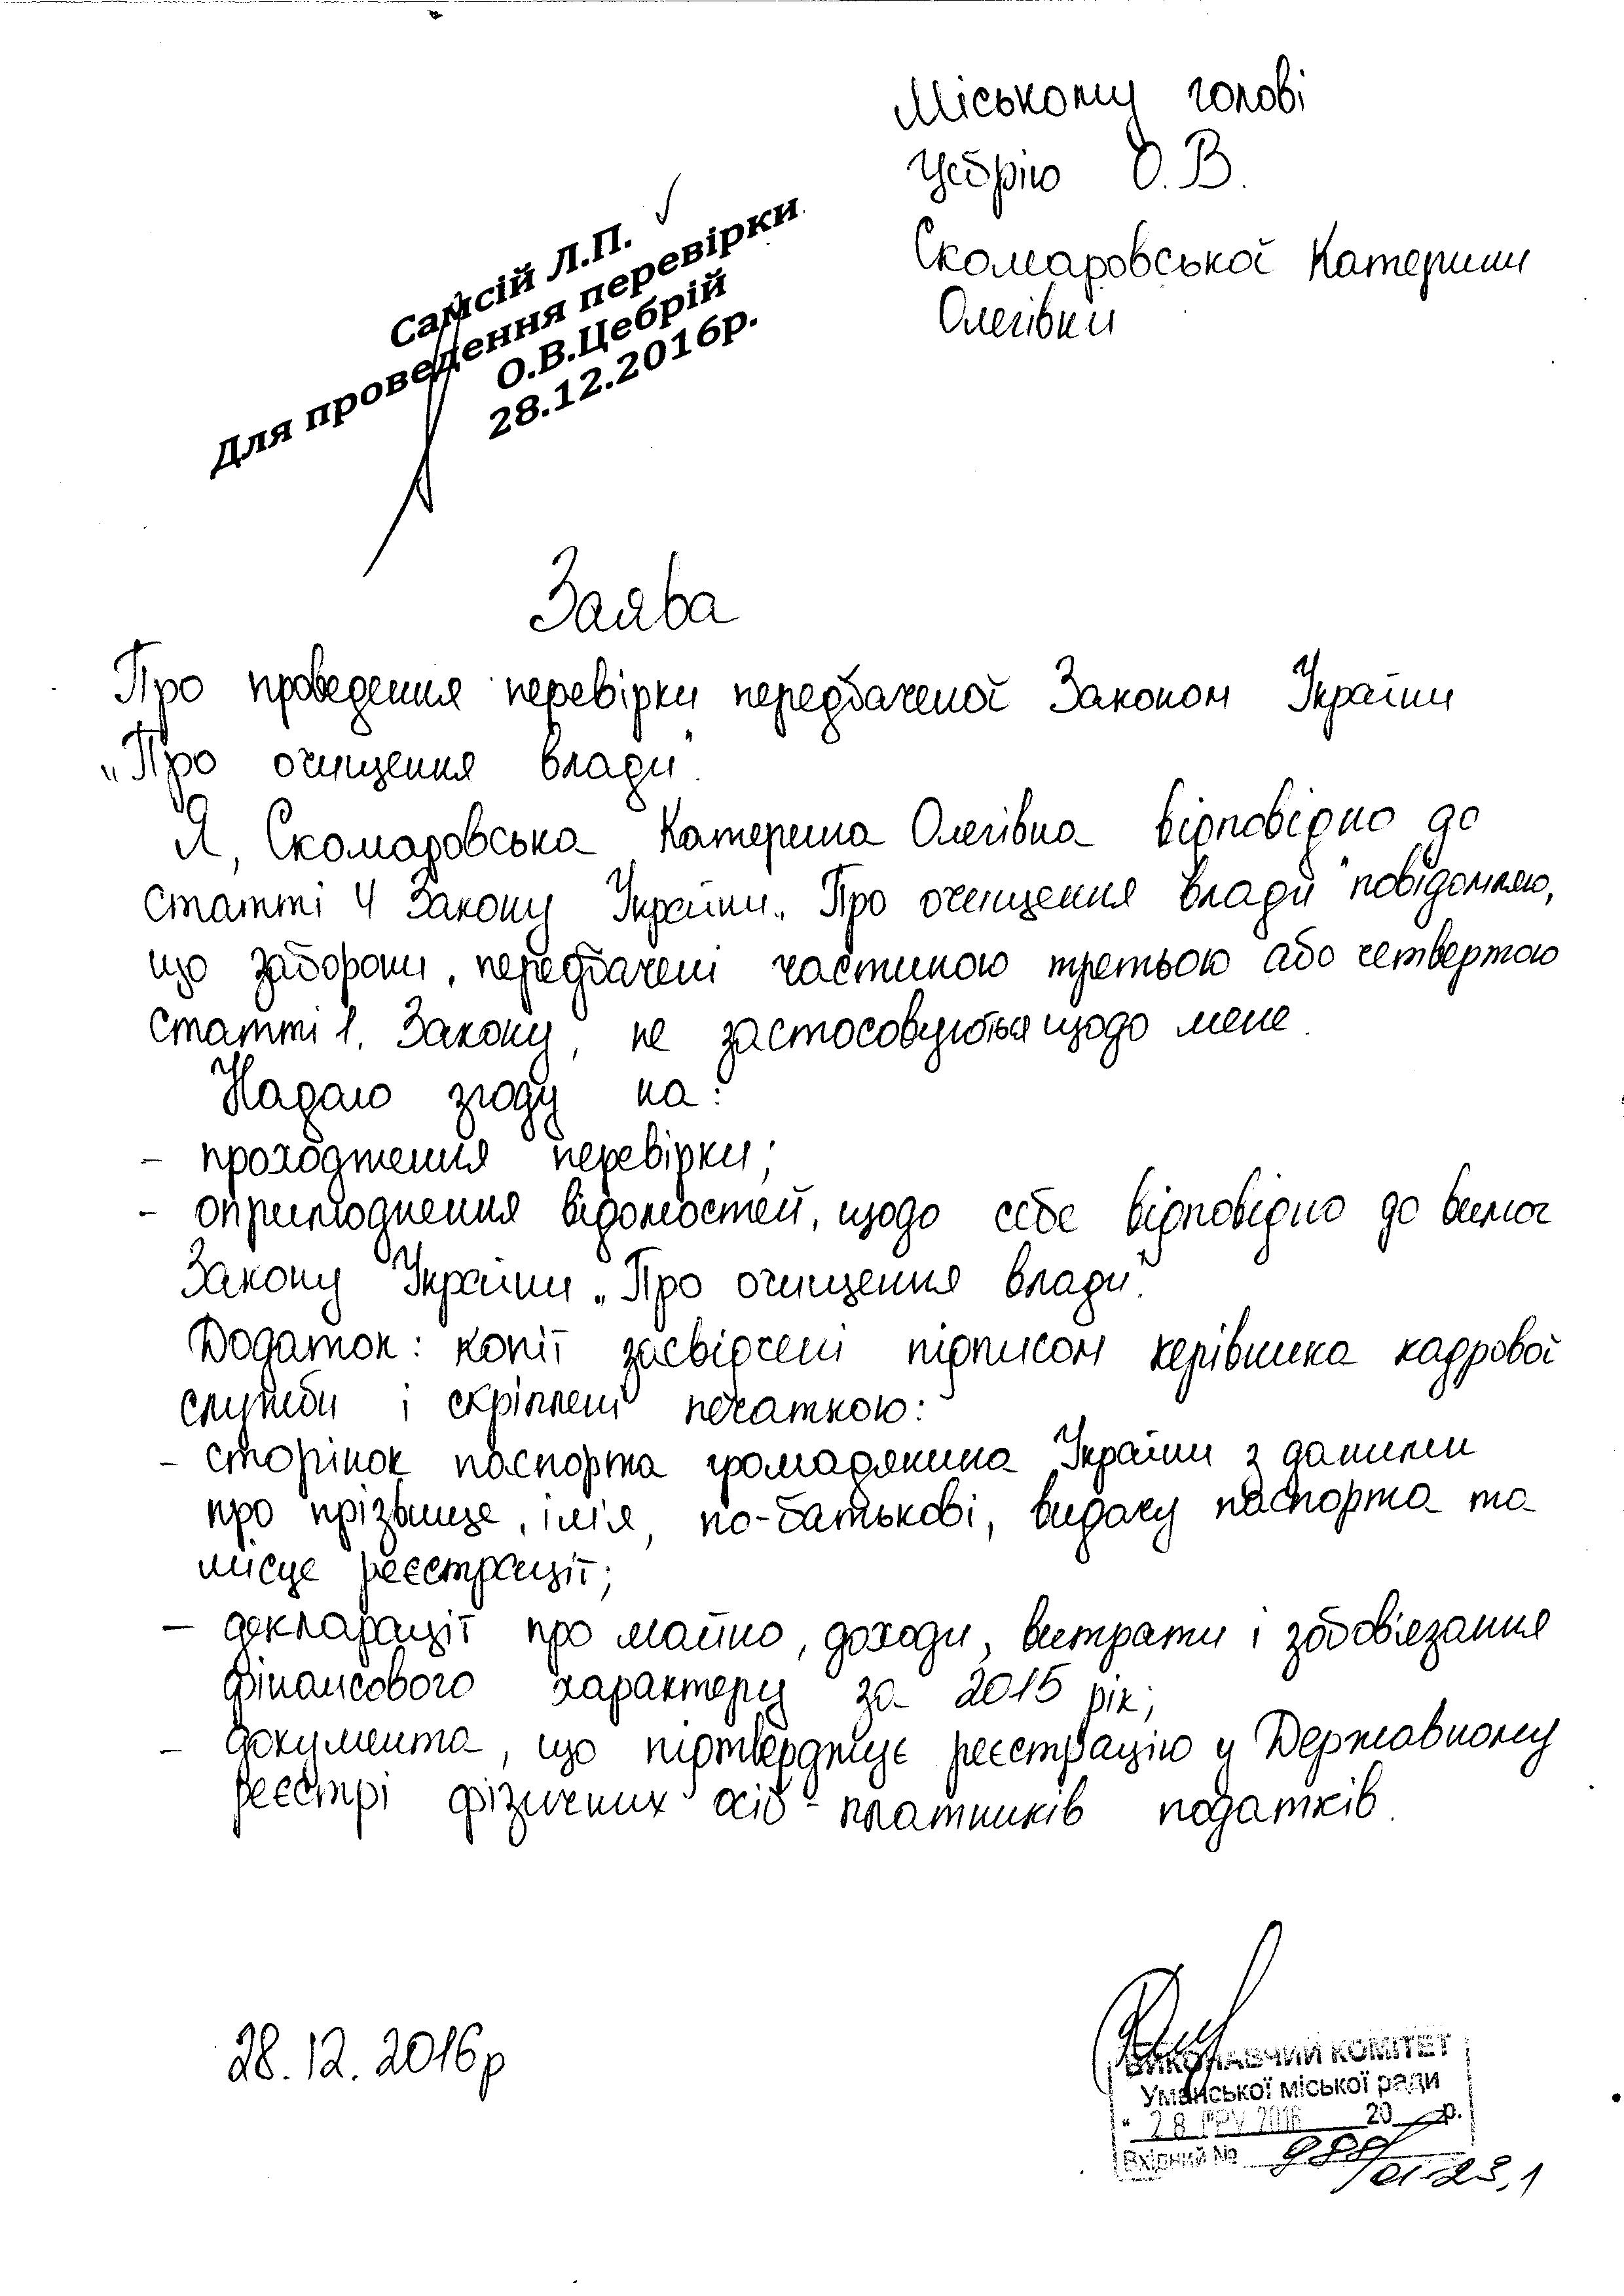 Міському голові
Цебрію О.В.
Скомаровської Катерини
Олегівни
Самсій Л.П.
Для проведення перевірки
О.В.Цебрій
28.12.2016р.
Заява
Про проведення перевірки передбаченої Законом України
„Про очищення влади".
Я, Скомаровська Катерина Олегівна відповідно до
статті 4 Закону України „Про очищення влади" повідомляю,
що заборони, передбачені частиною третьою або четвертою
статті 1. Закону, не застосовуються щодо мене.
Надаю згоду на:
- проходження перевірки;
- оприлюднення відомостей, щодо себе відповідно до вимог
Закону України „Про очищення влади".
Додаток: копії засвідчені підписом керівника кадрової
служби і скріплені печаткою:
- сторінок паспорта громадянина України з даними
про прізвище, ім'я, по-батькові, видачу паспорта та
місце реєстрації;
- декларації про майно, доходи, витрати і зобов'язання
фінансового характеру за 2015 рік;
- документа, що підтверджує реєстрацію у Державному
реєстрі фізичних осіб - платників податків.
28.12.2016р
ВИКОНАВЧИЙ КОМІТЕТ
Уманської міської ради
" 28 ГРУ 2016 20 р.
Вхідний № 988/01-23.1